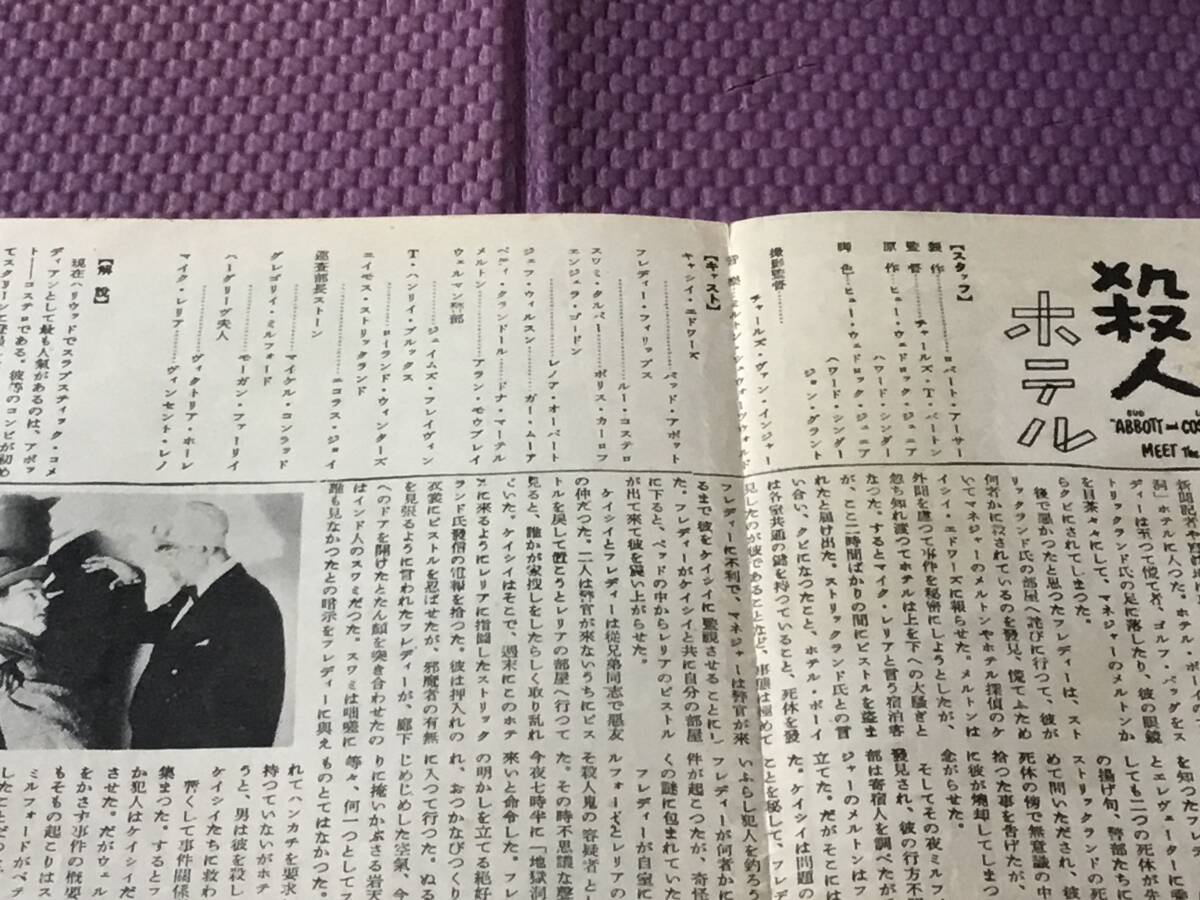 殺人
ホテル
BUD
"ABBOTT and COS
MEET The
【スタッフ】
製作………ロバート・アーサー
監督………チャールズ・T・バートン
原作………ヒュー・ウェドロック・ジュニア
ハワード・シンダー
脚色………ヒュー・ウェドロック・ジュニア
ハワード・シンダー
ジョン・グラント
撮影監督………
チャールズ・ヴァン・インジャー
【キャスト】
キャシイ・エドワーズ
………バッド・アボット
フレディー・フィリップス
………ルー・コステロ
スワミ・タルパー………ボリス・カーロフ
エンジェラ・ゴードン
………レノア・オーバート
ジェフ・ウィルスン………ガー・ムーア
ベティ・クランドール………ドナ・マーテル
メルトン………アラン・モウブレイ
ウェルマン警部
………ジェイムズ・フレイヴィン
T・ハンリイ・ブルックス
………ローランド・ウィンターズ
エイモス・ストリックランド
………ニコラス・ジョイ
巡査部長ストーン
………マイケル・コンラッド
グレゴリイ・ミルフォード
………モーガン・ファーリイ
ハーグリーヴ夫人
………ヴィクトリア・ホーレ
マイク・レリア………ヴィンセント・レノ
【解説】
現在ハリウッドでスラプスティック・コメ
ディアンとして最も人氣があるのは、アボッ
ト——コステロである。彼等のコンビが初め
洞」ホテルに入つた。ホテル・ボーイのフレ
ディーは至つて慌て者、ゴルフ・バッグをス
トリックランド氏の足に落したり、彼の眼鏡
を目茶々々にして、マネジャーのメルトンか
らクビにされてしまつた。
後で悪かつたと思つたフレディーは、スト
リックランド氏の部屋へ詫びに行つて、彼が
何者かに殺されているのを發見、慌てふため
いてマネジャーのメルトンやホテル探偵のケ
イシイ・エドワーズに報らせた。メルトンは
外聞を慮つて事件を秘密にしようとしたが、
忽ち知れ渡つてホテルは上を下への大騒ぎと
なつた。するとマイク・レリアと言う宿泊客
が、ここ二時間ばかりの間にピストルを盗ま
れたと届け出た。ストリックランド氏との言
い合い、クビになつたこと、ホテル・ボーイ
は各室共通の鍵を持つていること、死休を發
見したのが彼であることなど、事態は極めて
フレディーに不利で、マネジャーは警官が來
るまで彼をケイシイに監視させることにし
た。フレディーがケイシイと共に自分の部屋
に下ると、ベッドの中からレリアのピストル
が出て來て彼を震い上がらせた。
ケイシイとフレディーは從兄弟同志で悪友
の仲だつた。二人は警官が來ないうちにピス
トルを戻して置こうとレリアの部屋へ行つて
見ると、誰かが家捜しをしたらしく取り乱れ
ていた。ケイシイはそこで、週末にこのホテ
ルに來るようにレリアに指圖したストリック
ランド氏發信の電報を拾つた。彼は押入れの
衣裳にピストルを忍ばせたが、邪魔者の有無
を見張るように言われたフレディーが、廊下
へのドアを開けたとたん顔を突き合わせたの
はインド人のスワミだつた。スワミは咄嗟に
誰も見なかつたとの暗示をフレディーに與え
を知つたフレデ
とエレヴェーターに乘
しても二つの死休が先
の揚げ句、警部たちに
ストリックランドの死
めて問いただされ、彼
死休の傍で無意識の中
拾つた事を告げたが、
に彼が燒却してしまつ
念がらせた。
そしてその夜ミルフ
發見され、彼の行方不
部は寄宿人を調べたが
ジャーのメルトンはフ
立てた。だがそこには
た。ケイシイは問題の
ことを秘して、フレデ
いふらし犯人を釣ろう
フレディーが何者かに
件が起こつたが、奇怪
くの謎に包まれていた
フレディーが自室に
ルフォードとレリアの
そ殺人鬼の容疑者とし
た。その時不思議な聲
今夜七時半に「地獄洞
來いと命令した。フレ
の明かしを立てる絶好
れ、おつかなびつくり
に入つて行つた。ぬる
じめじめした空氣、今
りに掩いかぶさる岩天
等々、何一つとしてフ
ものとてはなかつた。
れてハンカチを要求
持つていないがホテ
うと、男は彼を殺し
ケイシイたちに救わ
暫くして事件關係
集まつた。するとフ
か犯人はケイシイだ
させた。だがウェル
をかさす事件の概要
もそもの起こりはス
ミルフォードがベテ